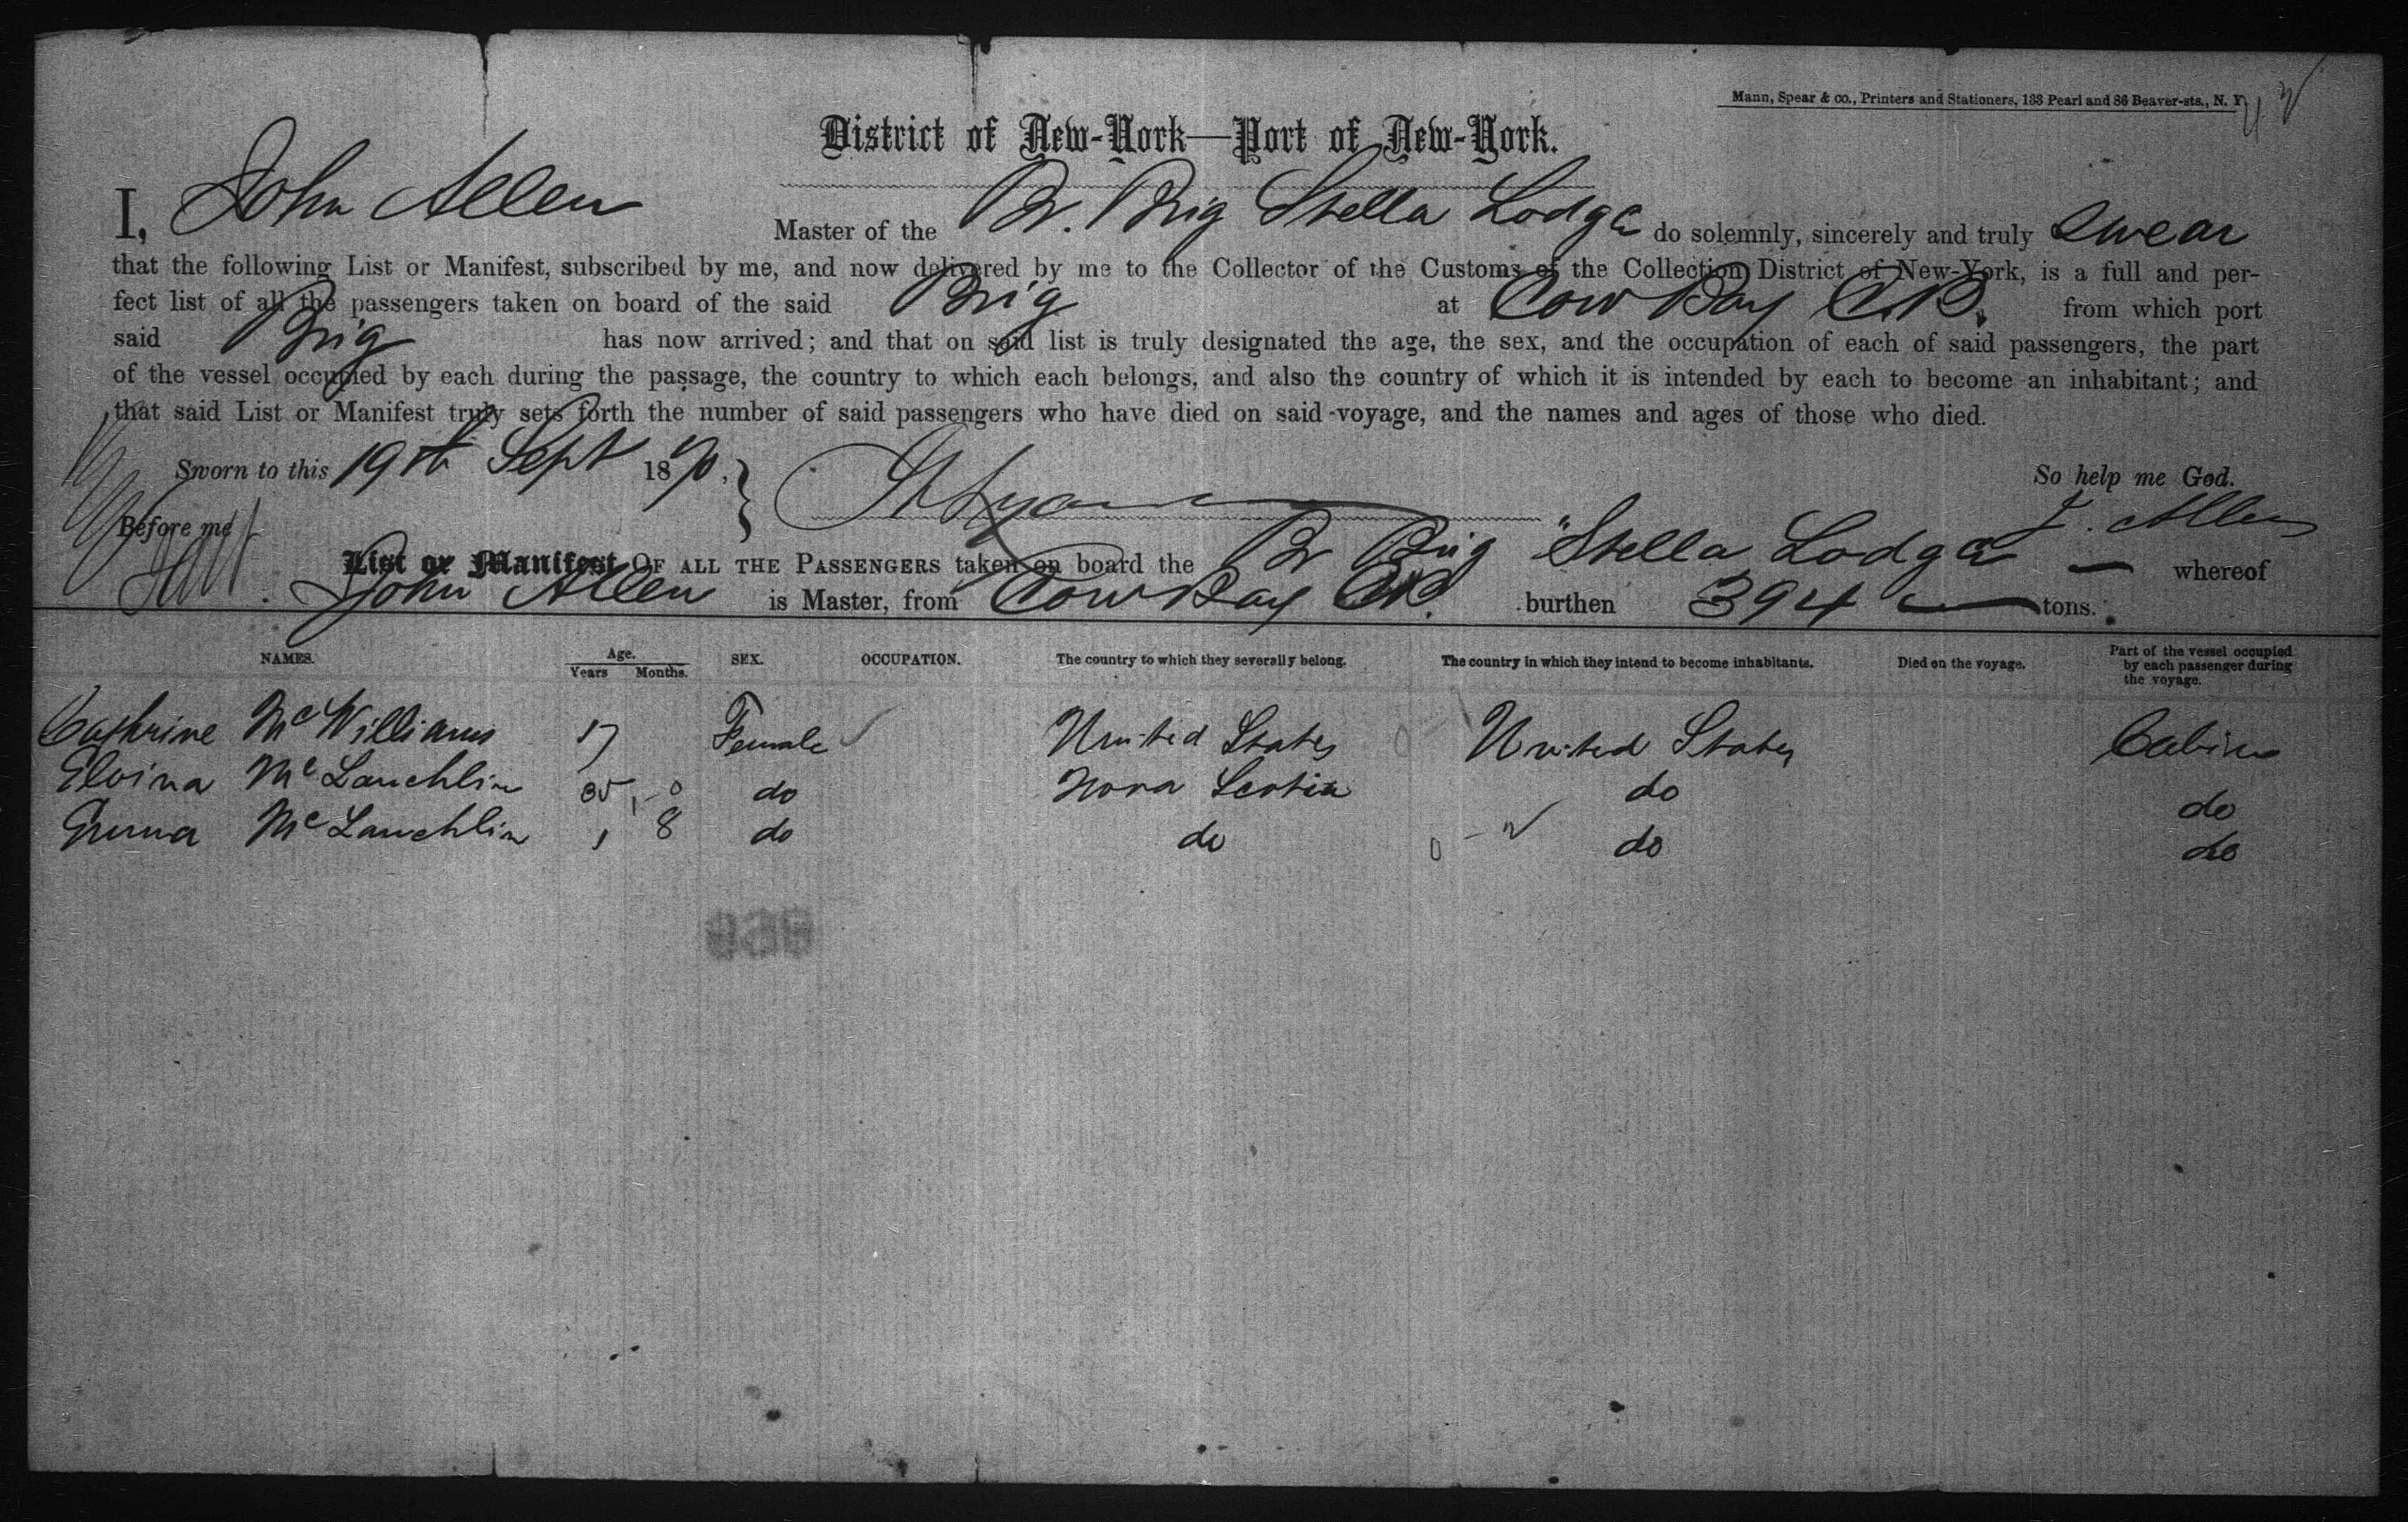 Mann, Spear & co., Printers and Stationers, 133 Pearl and 86 Beaver-sts., N. Y.
District of New-York—Port of New-York.
I, John Allen Master of the Br. Brig Stella Lodge do solemnly, sincerely and truly swear
that the following List or Manifest, subscribed by me, and now delivered by me to the Collector of the Customs of the Collection District of New-York, is a full and per-
fect list of all the passengers taken on board of the said Brig at Cow Bay C.B. from which port
said Brig has now arrived; and that on said list is truly designated the age, the sex, and the occupation of each of said passengers, the part
of the vessel occupied by each during the passage, the country to which each belongs, and also the country of which it is intended by each to become an inhabitant; and
that said List or Manifest truly sets forth the number of said passengers who have died on said voyage, and the names and ages of those who died.
Sworn to this 19th Sept 1870. So help me God.
Before me J. Allen
List or Manifest OF ALL THE PASSENGERS taken on board the Br Brig "Stella Lodge — whereof
John Allen is Master, from Cow Bay CB. burthen 394 — tons.
NAMES. Age. Years Months. SEX. OCCUPATION. The country to which they severally belong. The country in which they intend to become inhabitants. Died on the voyage. Part of the vessel occupied by each passenger during the voyage.
Cathrine McWilliams 17 Female United States United States Cabin
Eloina McLauchlin 35 do Nova Scotia do do
Emma McLauchlin 1 8 do do do do